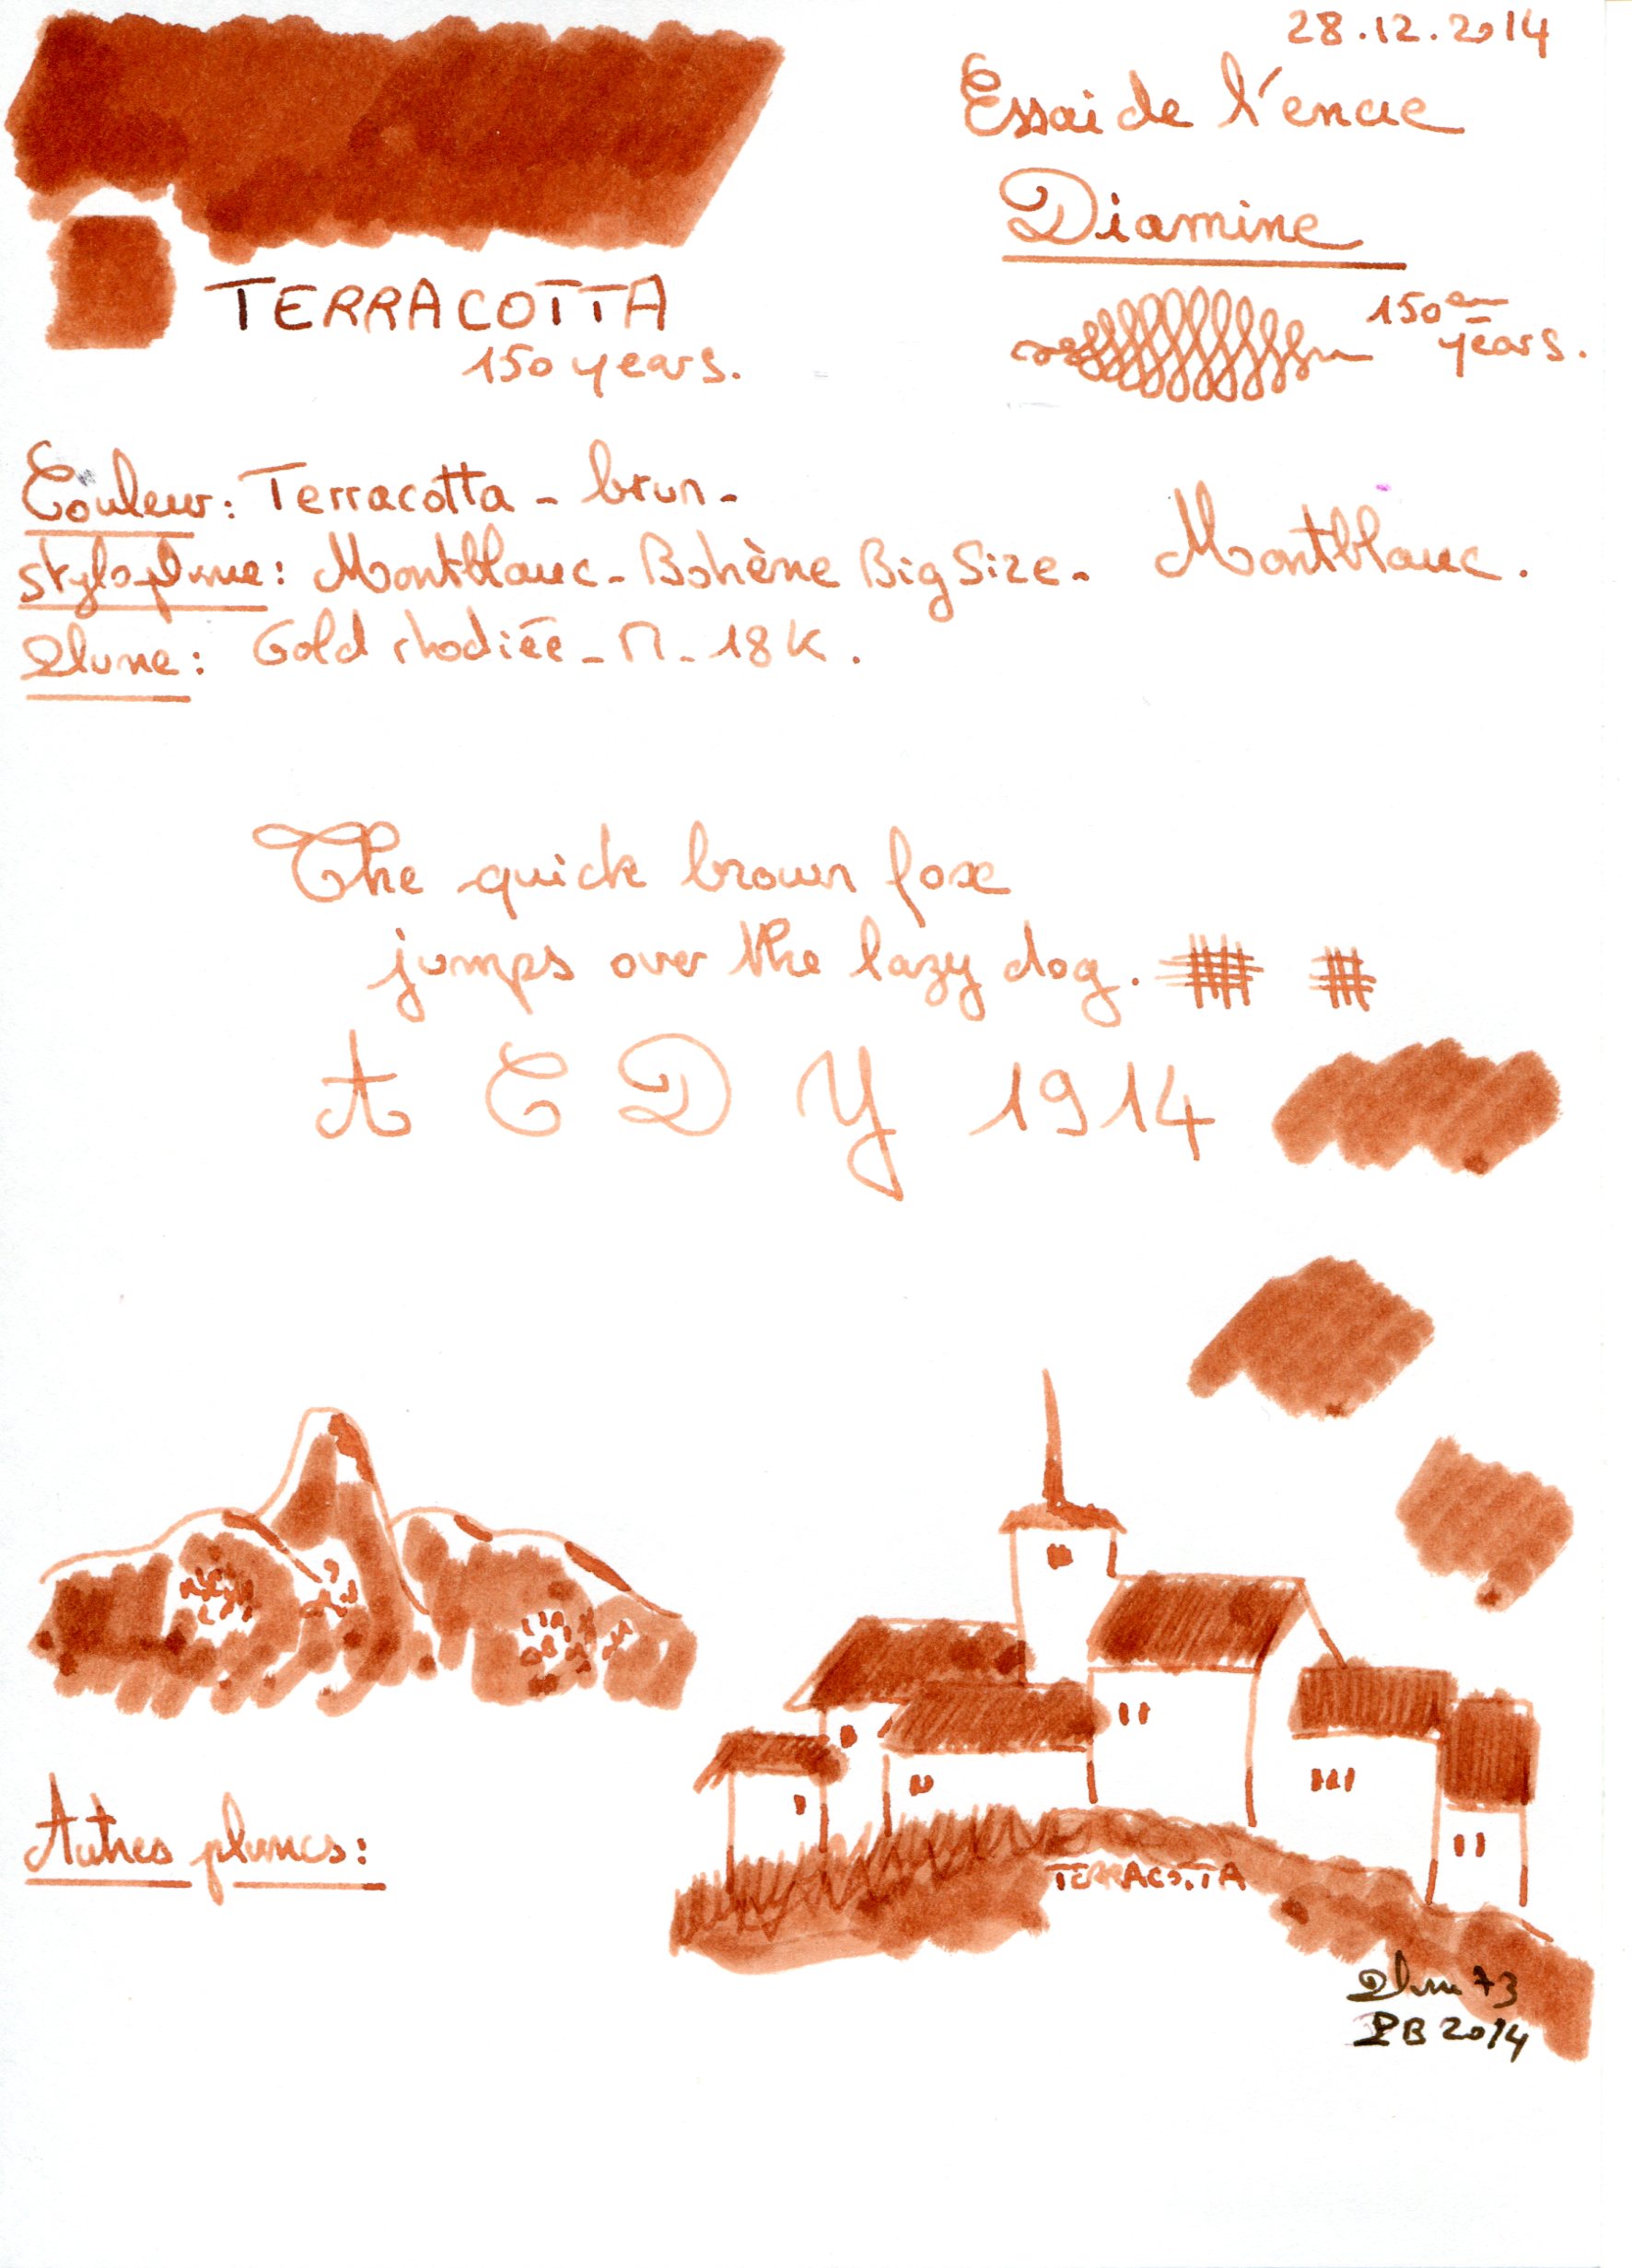 28.12.2014
Essai de l'encre
Diamine
150 years.
TERRACOTTA
150 years.
Couleur: Terracotta - brun -
Styloplume: Montblanc - Bohème Big Size - Montblanc.
Plume: Gold rhodiée - M - 18K.
The quick brown fox
jumps over the lazy dog.
A C D Y 1914
Autres plumes:
TERRACOTTA
Plum 73
PB 2014